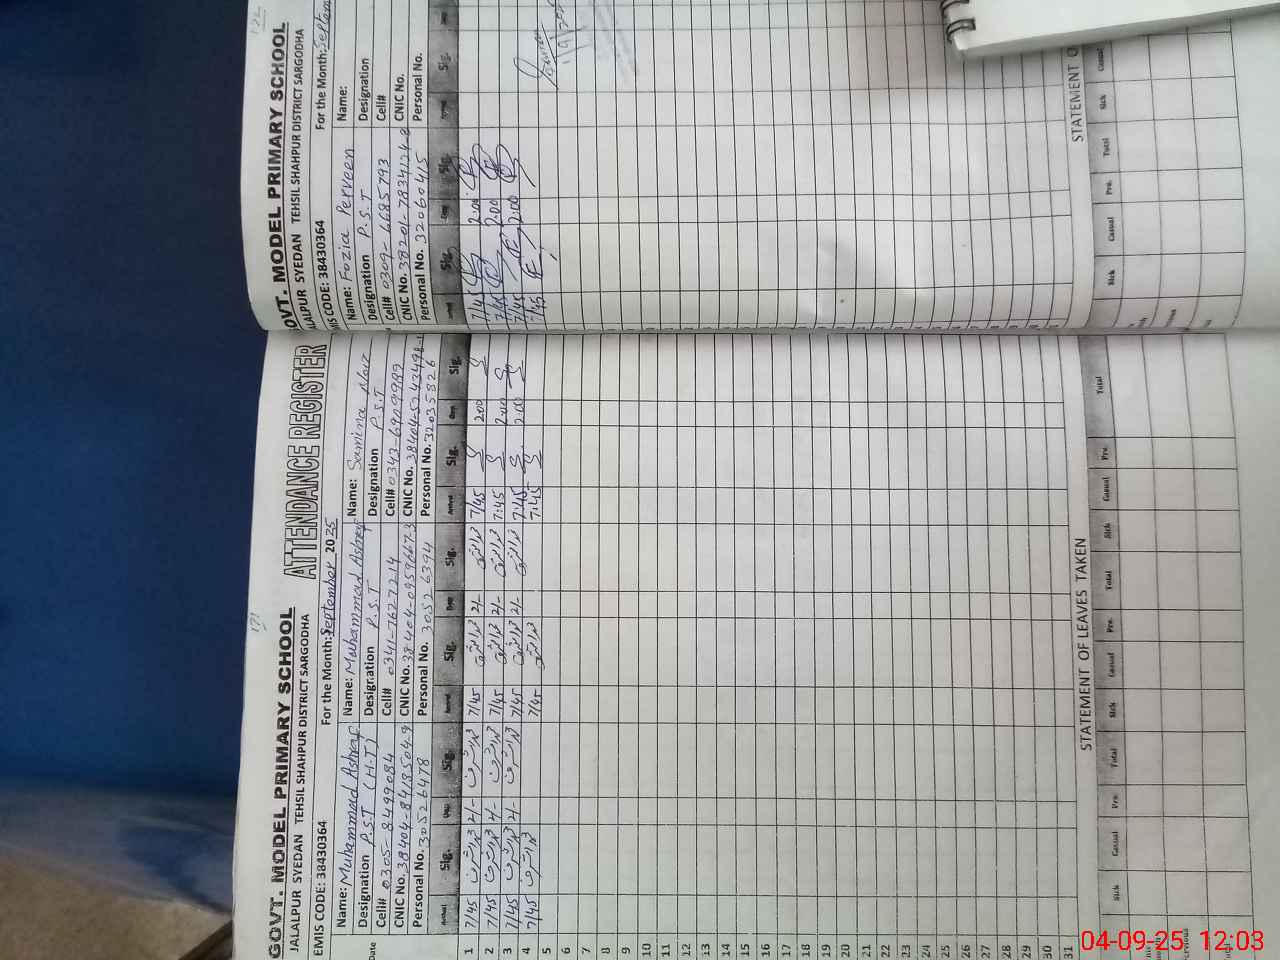 121
GOVT. MODEL PRIMARY SCHOOL
ATTENDANCE REGISTER
JALALPUR SYEDAN TEHSIL SHAHPUR DISTRICT SARGODHA
EMIS CODE: 38430364 For the Month: September 2025
Name: Muhammad Ashraf
Designation P.S.T (H.T)
Cell# 0305-8499084
CNIC No. 38404-8418504-9
Personal No. 30526478
Name: Muhammad Ashraf
Designation P.S.T
Cell# 0341-7627214
CNIC No. 38404-0959667-3
Personal No. 30526394
Name: Samina Naz
Designation P.S.T
Cell# 0343-6909989
CNIC No. 38404-5243498-
Personal No. 32035826
Date Arrival Sig. Dep Sig. Arrival Sig. Dep Sig. Arrival Sig. Dep Sig.
1 7/45 محمد اشرف 2/- محمد اشرف 7/45 محمد اشرف 2/- محمد اشرف 7/45 2:00
2 7/45 محمد اشرف 2/- محمد اشرف 7/45 محمد اشرف 2/- محمد اشرف 7:45 2:00
3 7/45 محمد اشرف 2/- محمد اشرف 7/45 محمد اشرف 2/- محمد اشرف 7:45 2:00
4 7/45 محمد اشرف 7/45 محمد اشرف 7:45
5
6
7
8
9
10
11
12
13
14
15
16
17
18
19
20
21
22
23
24
25
26
27
28
29
30
31
STATEMENT OF LEAVES TAKEN
Sick Casual Pre. Total Sick Casual Pre. Total Sick Casual Pre. Total
122
GOVT. MODEL PRIMARY SCHOOL
JALALPUR SYEDAN TEHSIL SHAHPUR DISTRICT SARGODHA
EMIS CODE: 38430364 For the Month: Septem
Name: Fozia Perveen
Designation P.S.T
Cell# 0309-6685793
CNIC No. 38201-7834124-8
Personal No. 32060415
Name:
Designation
Cell#
CNIC No.
Personal No.
Sig. Dep Sig. Sig.
7/45 2:00
7/45 2:00
7/45 2:00
7/45
STATEMENT O
Sick Casual Pre. Total Sick Casual
04-09-25 12:03